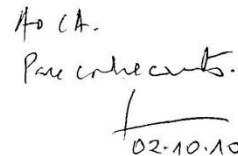 Ao CA.
Para conhecimento.
02.10.10